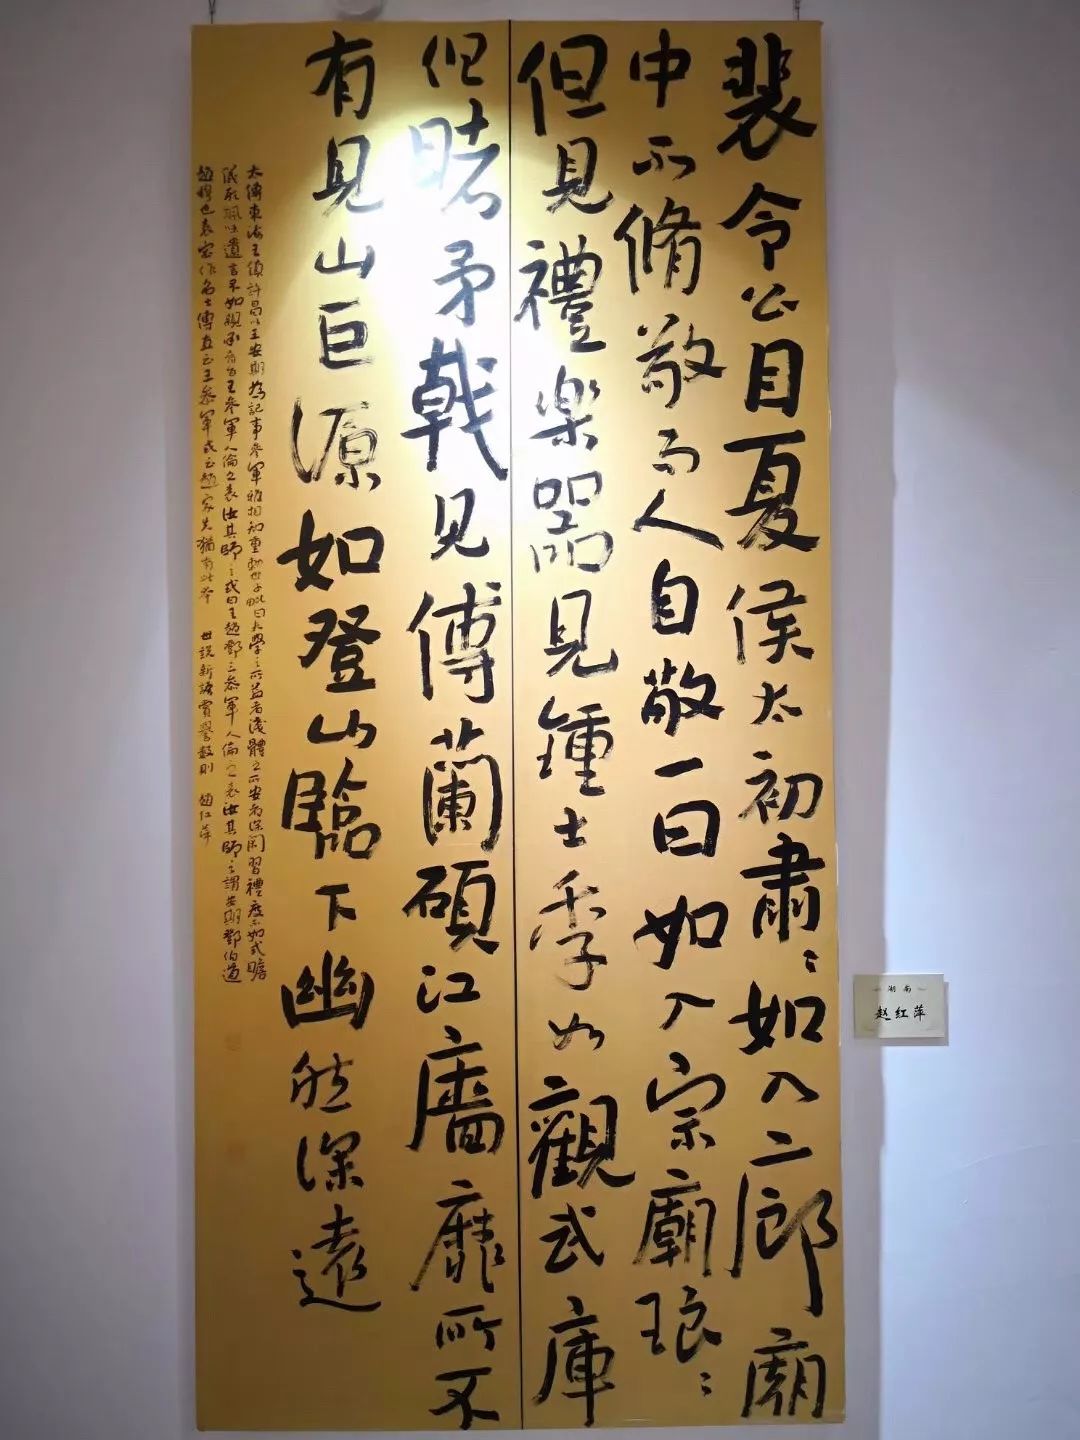 裴令公目夏侯太初肅〻如入廊廟
中不脩敬而人自敬一曰如入宗廟琅〻
但見禮楽器見鍾士季如觀武庫
但睹矛戟見傅蘭碩江廧靡所不
有見山巨源如登山臨下幽然深遠
太傅東海王鎮許昌以王安期為記室參軍雅相知重勑世子毗曰夫學之所益者淺體之所安者深閑習禮度不如式瞻
儀形諷味遺言不如親承音旨王參軍人倫之表汝其師之或曰王趙鄧三參軍人倫之表汝其師之謂安期鄧伯道
趙穆也袁宏作名士傳直云王參軍或云趙家先猶有此本 世說新語賞譽數則 趙红萍
湖南
赵红萍